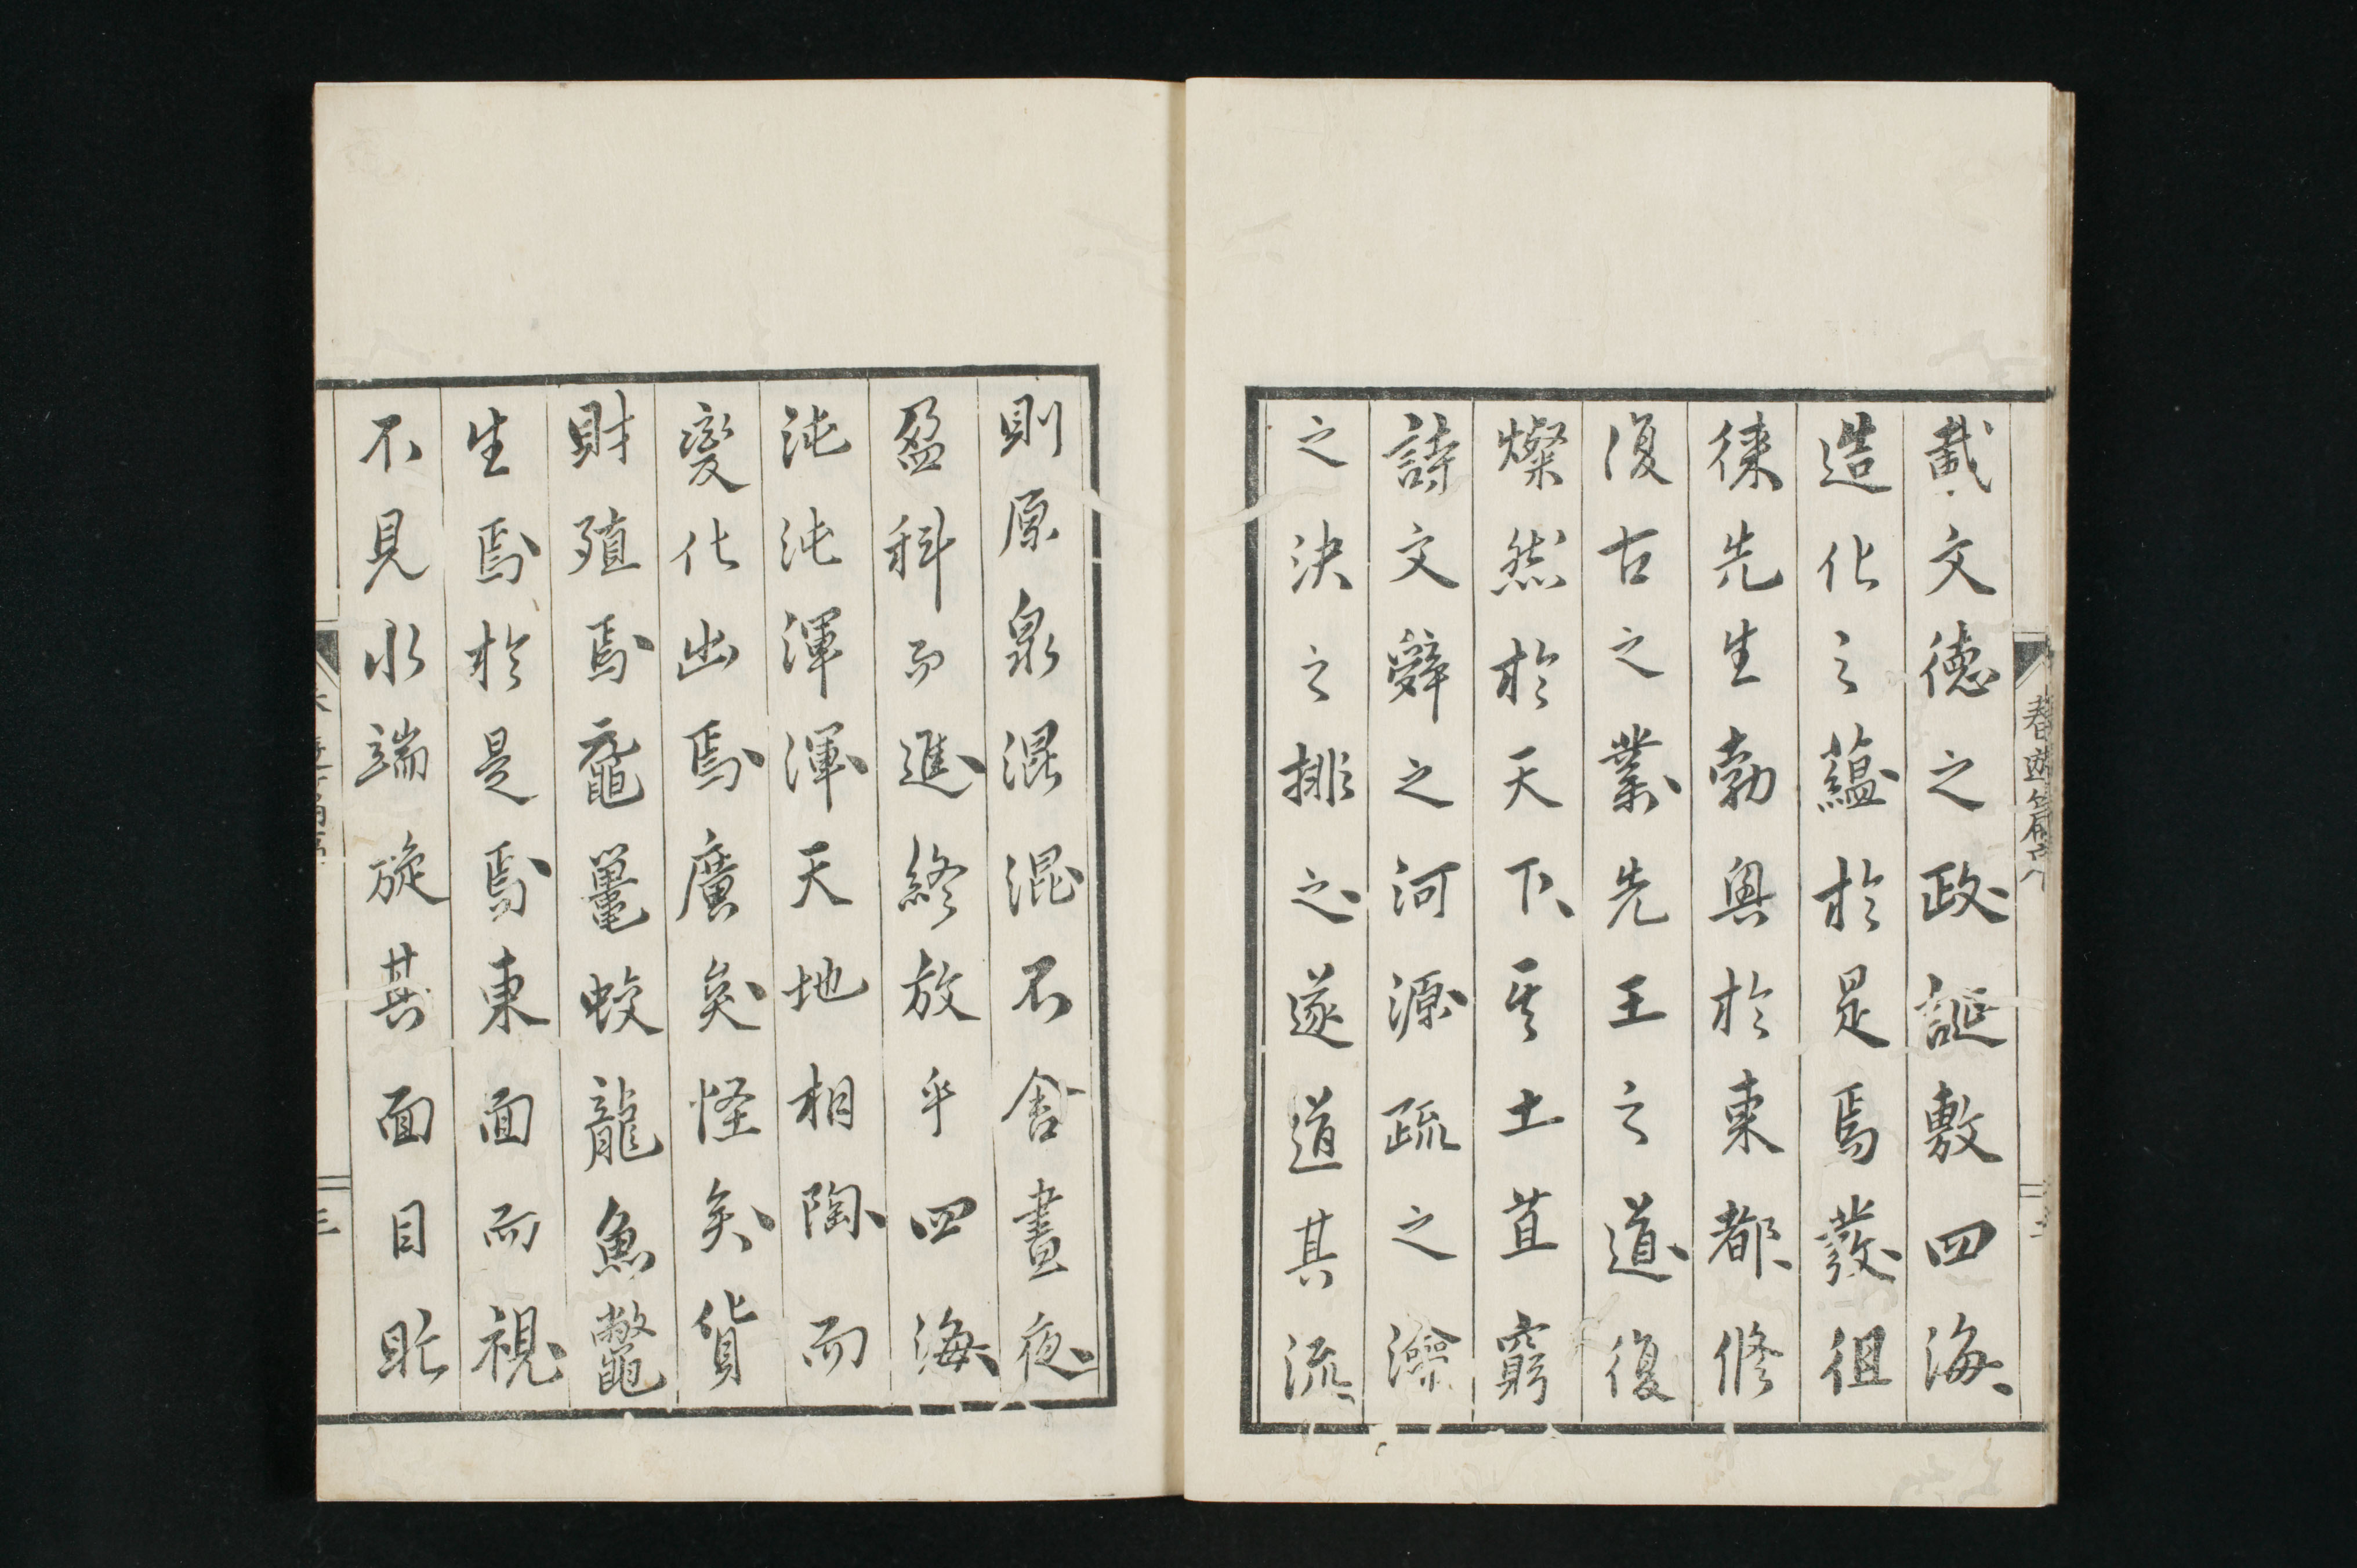 載文德之政誕敷四海
造化之蘊於是焉發徂
徠先生勃興於東都修
復古之業先王之道復
燦然於天下其土苴窮
詩文辭之河源疏之瀹
之決之排之遂道其流
則原泉混混不舍晝夜
盈科而進終放乎四海
沌沌渾渾天地相陶而
變化出焉廣矣怪矣貨
財殖焉黿鼉蛟龍魚鼈
生焉於是焉東面而視
不見水端旋其面目眂